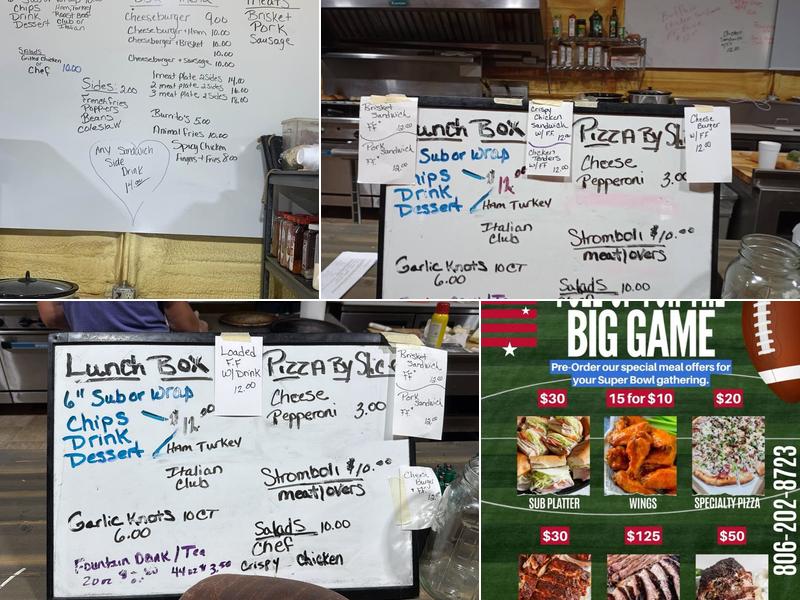 Chips
Drink
Dessert
Ham, Turkey
Roast Beef
Club or
Italian
Salads
Grilled Chicken
or
Chef 10.00
Sides: 2.00
French fries
Poppers
Beans
coleslaw
Any Sandwich
Side
Drink
14.00
Cheeseburger 9.00
Cheeseburger + Ham 10.00
Cheeseburger + Brisket 10.00
10.00
Cheeseburger + Sausage 10.00
1 meat plate 2 sides 14.00
2 meat plate 2 sides 16.00
3 meat plate 2 sides 18.00
Burrito's 5.00
Animal Fries 10.00
Spicy Chicken
Fingers + Fries 8.00
Meats
Brisket
Pork
Sausage
Brisket
Sandwich
FF
12.00
Pork
Sandwich
FF
12.00
Lunch Box
Sub or Wrap
Chips
Drink
Dessert
Ham Turkey
Italian
Club
Garlic Knots 10CT
6.00
Crispy
Chicken
Sandwich
w/ FF 12.00
Chicken
Tenders
w/ FF 12.00
Pizza By Sli
Cheese
Pepperoni 3.00
Stromboli $10.00
meat lovers
Salads 10.00
Cheese
Burger
w/ FF
12.00
Lunch Box
6" Sub or Wrap
Chips
Drink
Dessert
Ham Turkey
Italian
Club
Garlic Knots 10CT
6.00
Fountain Drink / Tea
20oz 44oz $3.50
Loaded
F.F
w/ Drink
12.00
Pizza By Slic
Cheese
Pepperoni 3.00
Stromboli $10.00
meat lovers
Salads 10.00
Chef
Crispy Chicken
Brisket
Sandwich
FF
12.00
Pork
Sandwich
FF
12.00
Cheese
Burger
BIG GAME
Pre-Order our special meal offers for
your Super Bowl gathering.
$30 15 for $10 $20
SUB PLATTER WINGS SPECIALTY PIZZA
$30 $125 $50
806-202-8723